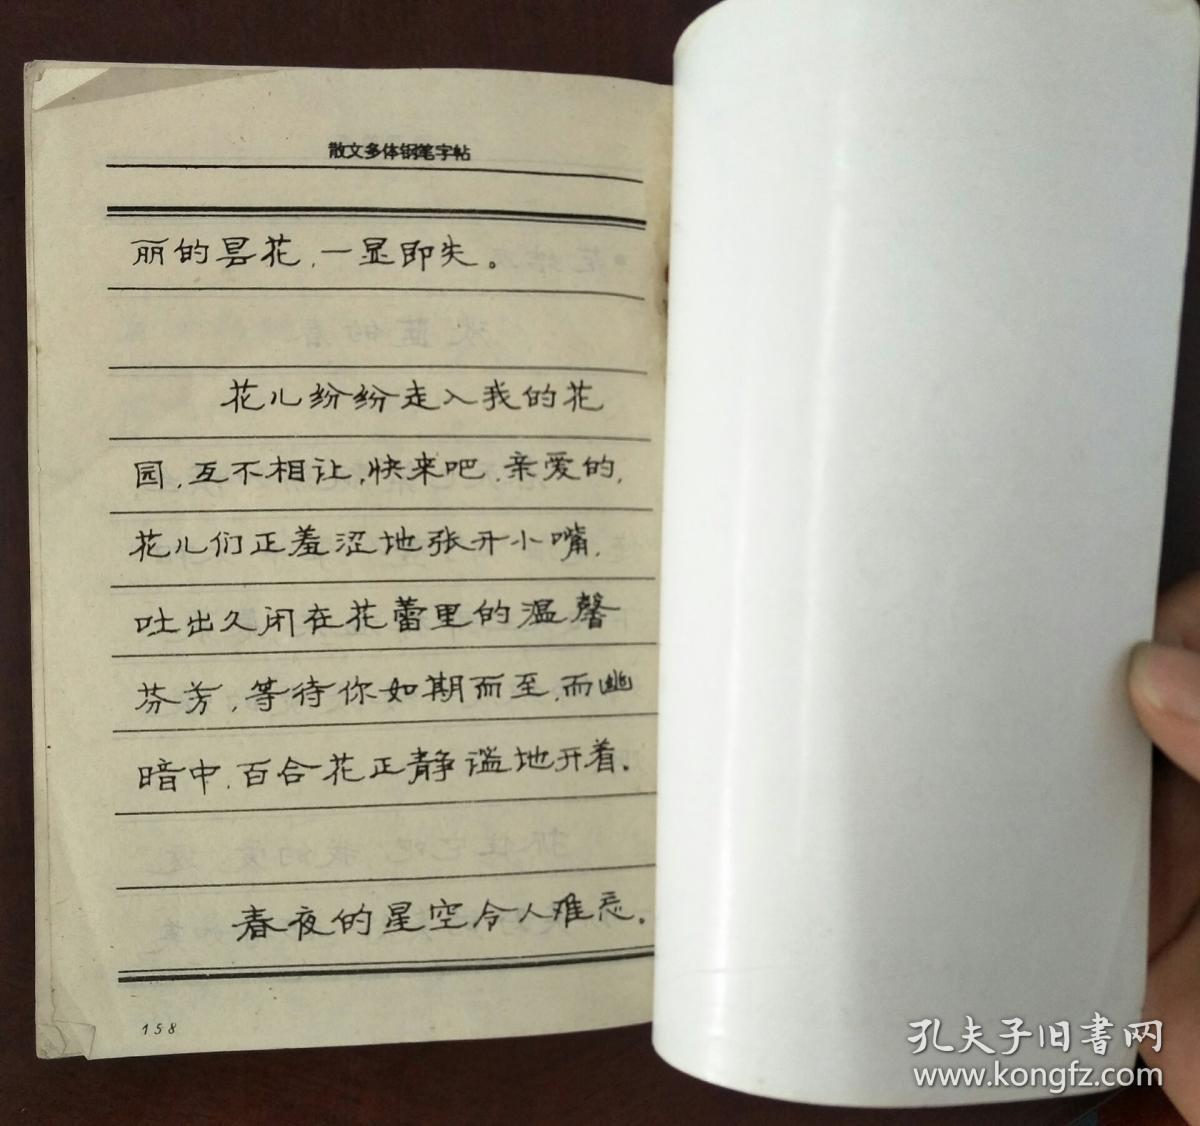 散文多体钢笔字帖
丽的昙花，一显即失。
花儿纷纷走入我的花
园，互不相让，快来吧，亲爱的，
花儿们正羞涩地张开小嘴，
吐出久闭在花蕾里的温馨
芬芳，等待你如期而至，而幽
暗中，百合花正静谧地开着。
春夜的星空令人难忘。
158
孔夫子旧书网
www.kongfz.com